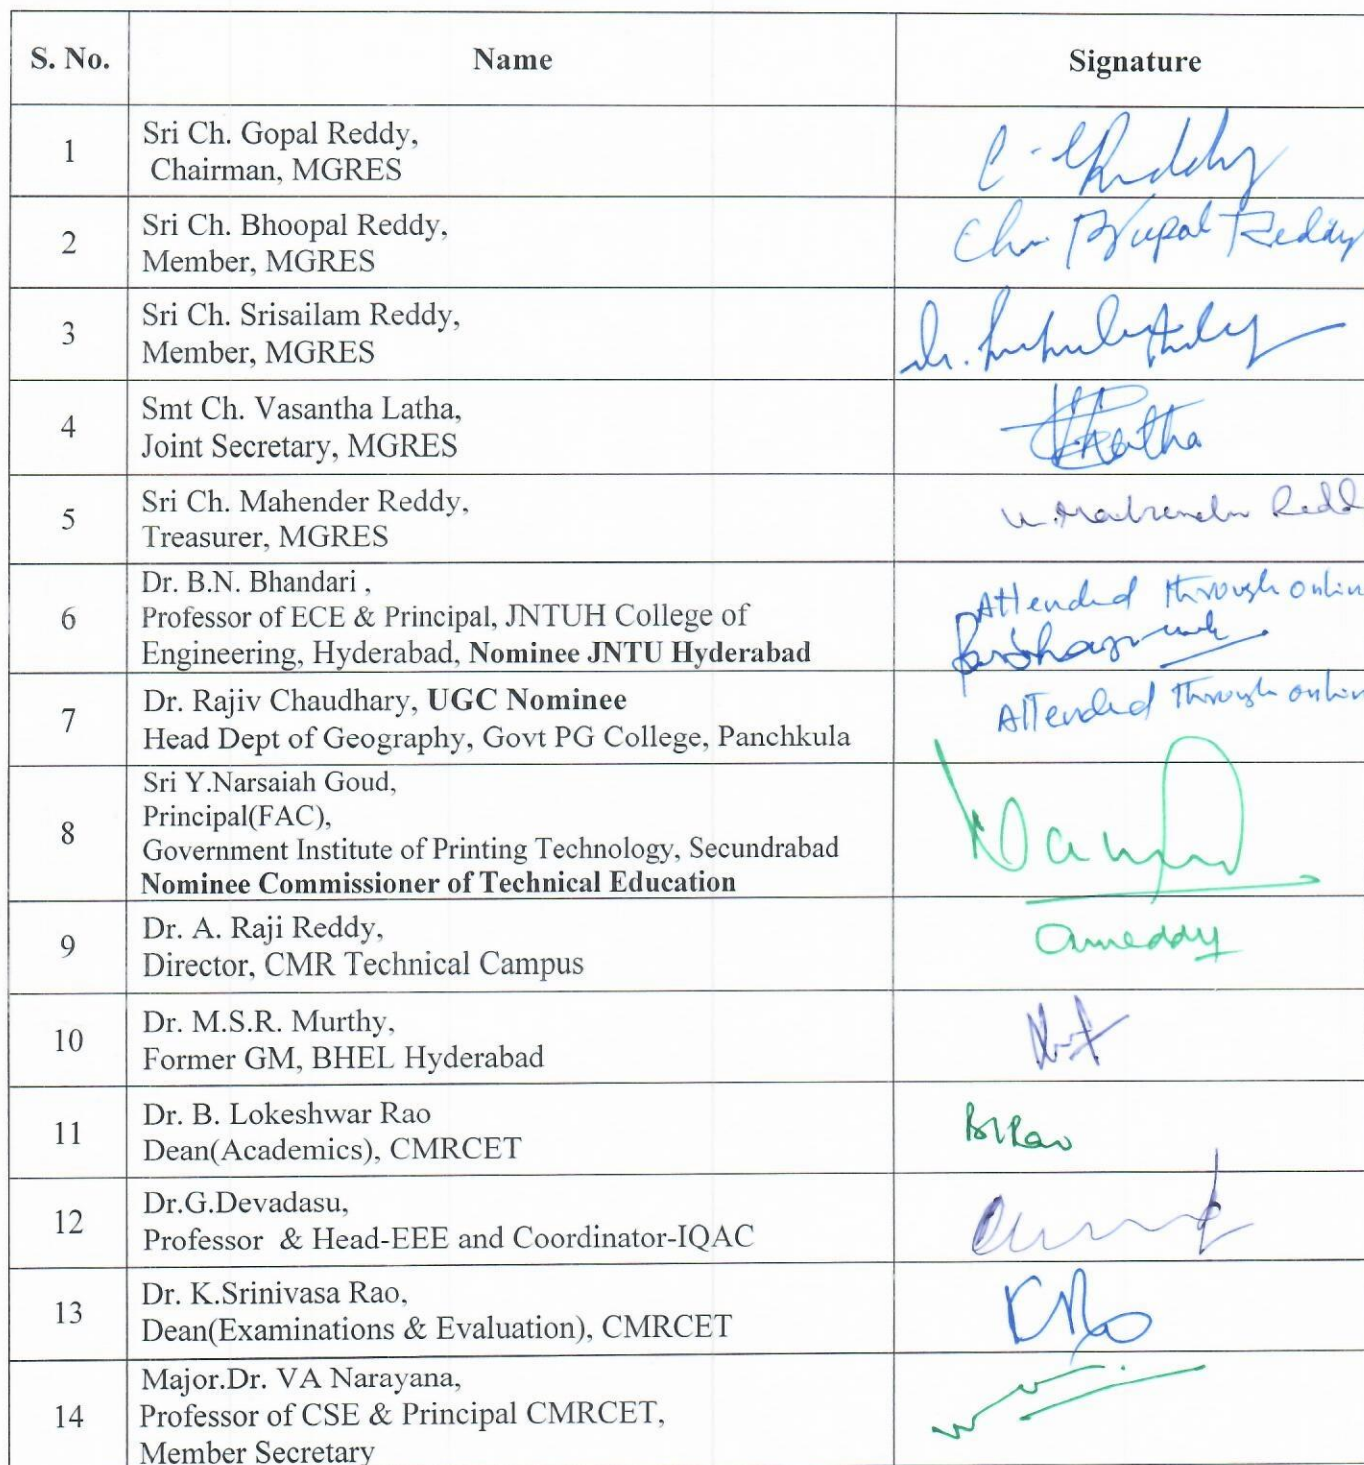 S. No. Name Signature
1 Sri Ch. Gopal Reddy,
Chairman, MGRES
2 Sri Ch. Bhoopal Reddy,
Member, MGRES
Reddy
3 Sri Ch. Srisailam Reddy,
Member, MGRES
4 Smt Ch. Vasantha Latha,
Joint Secretary, MGRES
Latha
5 Sri Ch. Mahender Reddy,
Treasurer, MGRES
6 Dr. B.N. Bhandari ,
Professor of ECE & Principal, JNTUH College of
Engineering, Hyderabad, Nominee JNTU Hyderabad
Attended through onlin
7 Dr. Rajiv Chaudhary, UGC Nominee
Head Dept of Geography, Govt PG College, Panchkula
Attended through onlin
8 Sri Y.Narsaiah Goud,
Principal(FAC),
Government Institute of Printing Technology, Secundrabad
Nominee Commissioner of Technical Education
9 Dr. A. Raji Reddy,
Director, CMR Technical Campus
10 Dr. M.S.R. Murthy,
Former GM, BHEL Hyderabad
11 Dr. B. Lokeshwar Rao
Dean(Academics), CMRCET
12 Dr.G.Devadasu,
Professor & Head-EEE and Coordinator-IQAC
13 Dr. K.Srinivasa Rao,
Dean(Examinations & Evaluation), CMRCET
14 Major.Dr. VA Narayana,
Professor of CSE & Principal CMRCET,
Member Secretary